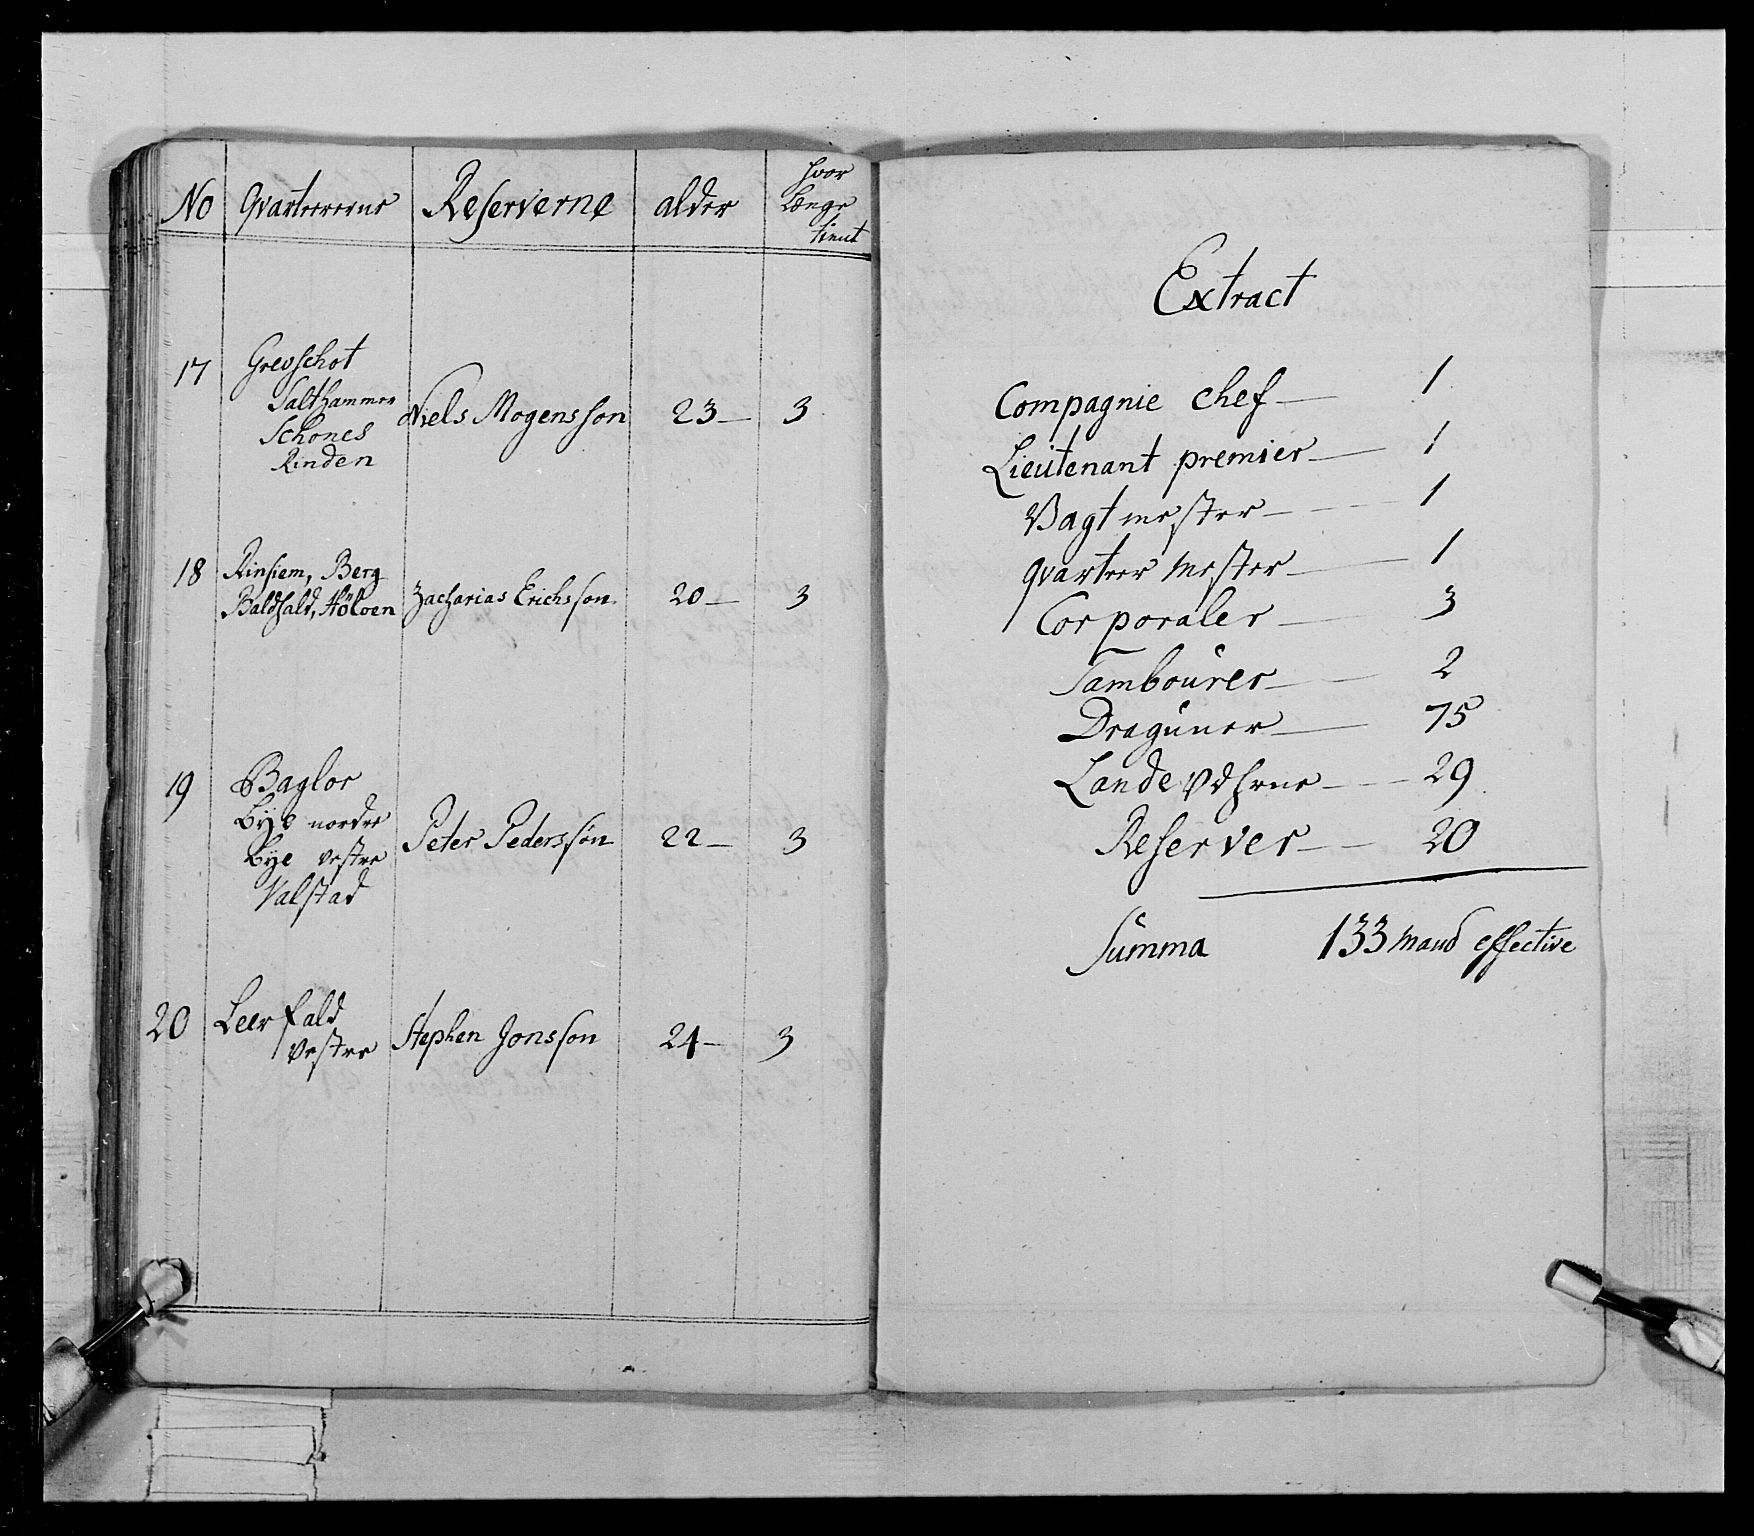 No Qvarteererne Reserverne alder hvor
Længe
tient
17 Grevschot
Salthammer
Schones
Rinden
Niels Mogensson 23 — 3
18 Rinsem, Berg
Baldhald, Hölven
Zacharias Erichsson 20 — 3
19 Baglor
Bÿe nordre
Bÿe vestre
Valstad
Peter Pederssøn 22 — 3
20 Leerfald
vestre
Stephen Jonsson 24 — 3
Extract
Compagnie Chef — 1
Lieutenant premier — 1
Vagtmester — 1
qvarteer Mester — 1
Corporaler — 3
Tambourer — 2
Draguner — 75
Lande Vdherne — 29
Reserver — 20
Summa 133 mand effective